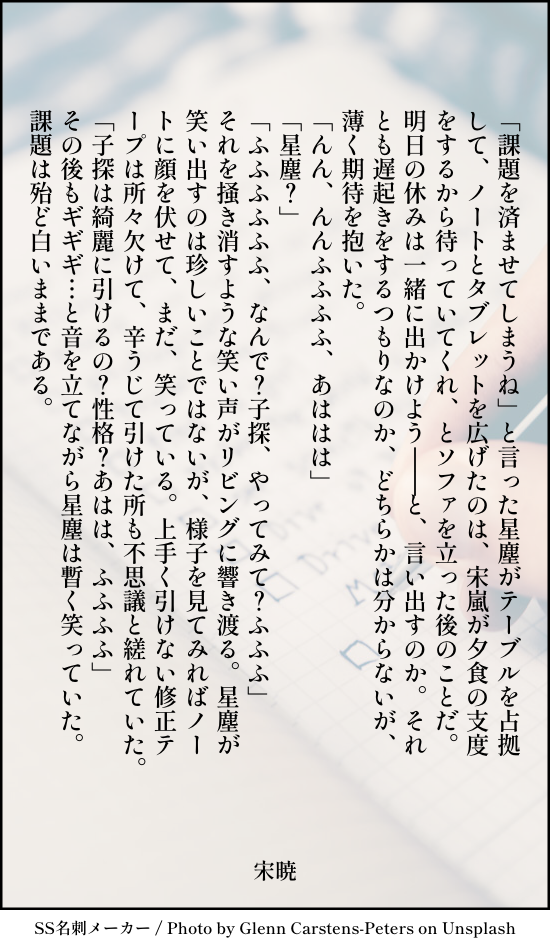 「課題を済ませてしまうね」と言った星塵がテーブルを占拠
して、ノートとタブレットを広げたのは、宋嵐が夕食の支度
をするから待っていてくれ、とソファを立った後のことだ。
明日の休みは一緒に出かけよう――と、言い出すのか。それ
とも遅起きをするつもりなのか、どちらかは分からないが、
薄く期待を抱いた。
「んん、んんふふふふ、あははは」
「星塵？」
「ふふふふふふ、なんで？子探、やってみて？ふふふ」
それを掻き消すような笑い声がリビングに響き渡る。星塵が
笑い出すのは珍しいことではないが、様子を見てみればノー
トに顔を伏せて、まだ、笑っている。上手く引けない修正テ
ープは所々欠けて、辛うじて引けた所も不思議と縒れていた。
「子探は綺麗に引けるの？性格？あはは、ふふふふ」
その後もギギギ…と音を立てながら星塵は暫く笑っていた。
課題は殆ど白いままである。
宋暁
SS名刺メーカー / Photo by Glenn Carstens-Peters on Unsplash